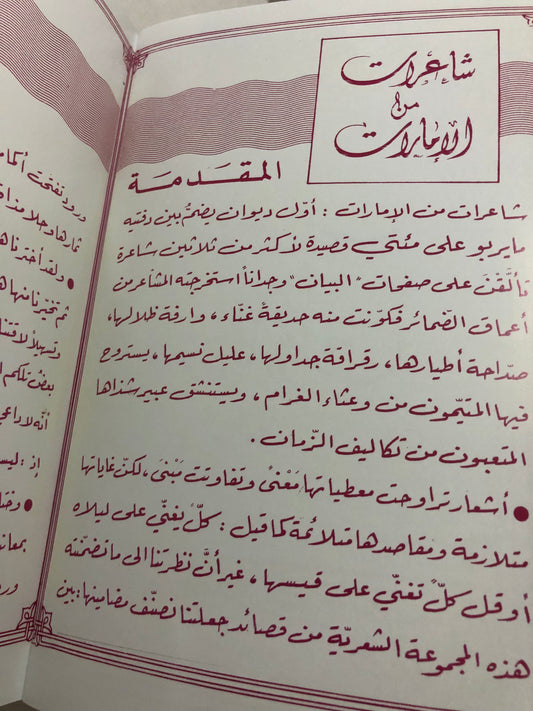 شاعرات
من
الإمارات
المقدمة
شاعرات من الإمارات : أوّل ديوان يضمّ بين دفتيه
ما يربو على مئتي قصيدة لأكثر من ثلاثين شاعرة
تألّقنَ على صفحات "البيان" وجداناً استخرجته المشاعر من
أعماق الضّمائر فكوّنت منه حديقةً غنّاء، وارفة ظلالها،
صدّاحة أطيارها، رقراقة جداولها، عليل نسيمها، يستروح
فيها المتيّمون من وعثاء الغرام، ويستنشق عبير شذاها
المتعبون من تكاليف الزّمان.
● أشعار تراوحت معطياتها مَعْنىً وتفاوتت مَبْنىً، لكنّ غاياتها
متلازمة ومقاصدها متلائمة كما قيل: كلٌّ يغنّي على ليلاه
أو قل كلٌّ تغنّي على قيسها، غير أنَّ نظرتنا الى ما تضمّنته
هذه المجموعة الشعريّة من قصائد جعلتنا نصنّف مضامينها: بين
ورود تفتحت
ثمارها وحلا
● ولقد أخترناها
ثم تخيّرنا منها
وتسهيلاً
بعض تلكم
أنّه لا داعي
إذ : ليس